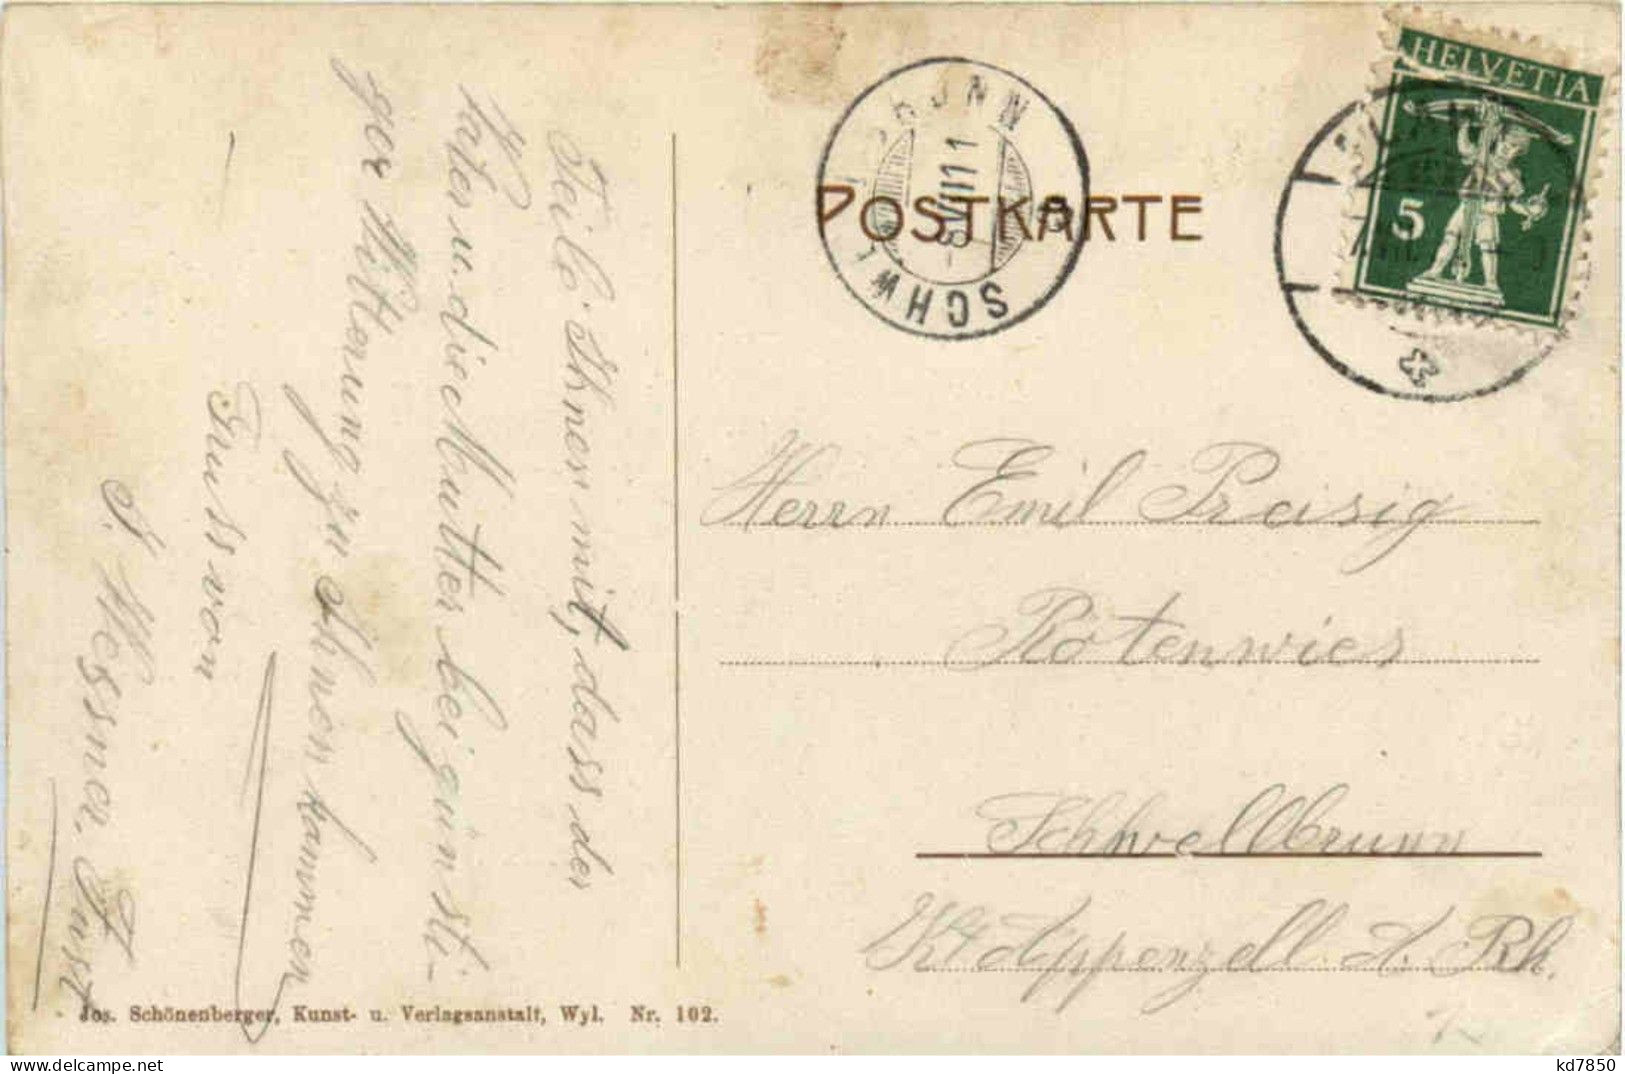 HELVETIA
5
POSTKARTE
SCHWELLBRUNN
VII 11
Teile Ihnen mit, dass der
Vater u. die Mutter bei günsti-
ger Witterung zu Ihnen kommen
Gruss von
J. Messner. Just
Herrn Emil Preisig
Rotenwies
Schwellbrunn
Kt Appenzell A. Rh.
Jos. Schönenberger, Kunst- u. Verlagsanstalt, Wyl. Nr. 102.
kd7850